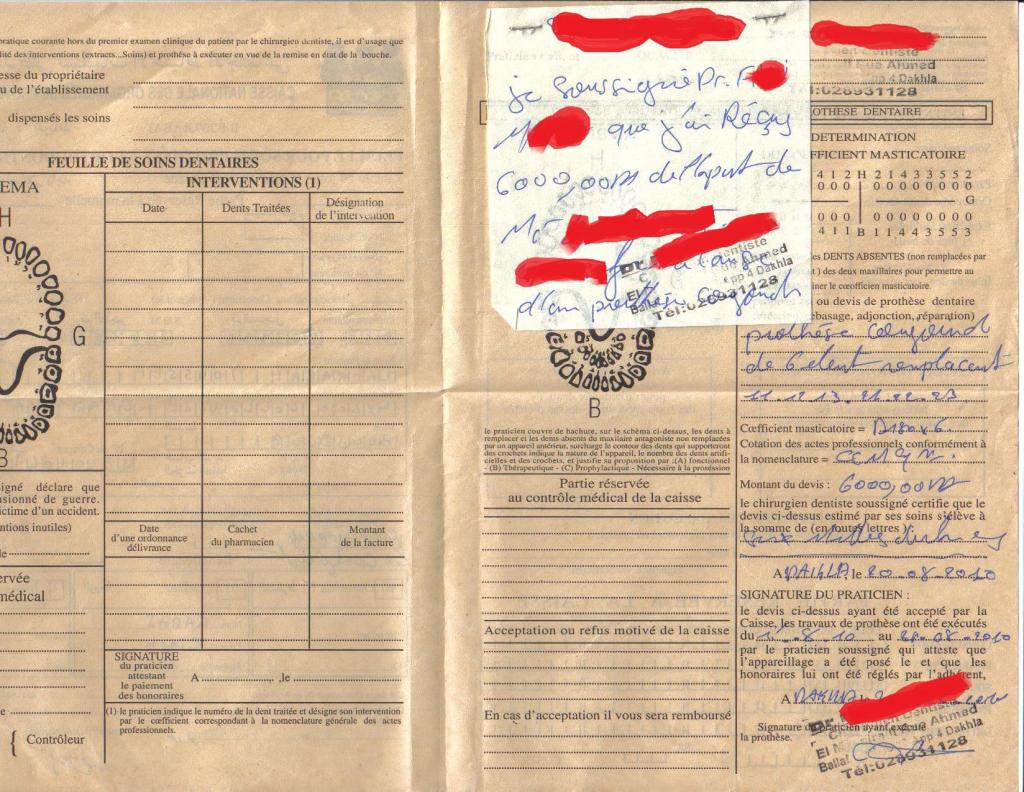 pratique courante hors du premier examen clinique du patient par le chirurgien dentiste, il est d'usage que
lité des interventions (extracts...Soins) et prothèse à exécuter en vue de la remise en état de la bouche.
esse du propriétaire
u de l'établissement
dispensés les soins
FEUILLE DE SOINS DENTAIRES
EMA
H
G
B
INTERVENTIONS (1)
Date
Dents Traitées
Désignation
de l'intervention
signé déclare que
ensionné de guerre.
ictime d'un accident.
entions inutiles)
le
Date
d'une ordonnance
délivrance
Cachet
du pharmacien
Montant
de la facture
ervée
médical
SIGNATURE
du praticien
attestant
le paiement
des honoraires
A ,le
(1) le praticien indique le numéro de la dent traitée et désigne son intervention
par le coefficient correspondant à la nomenclature générale des actes
professionnels.
{ Contrôleur
je soussigné Dr. F
que j'ai Réçus
6000,00
de
d'un prothèse conjoint
Dentiste
Ahmed
App 4 Dakhla
Tél:028931128
B
le praticien couvre de hachure, sur le schéma ci-dessus, les dents à
remplacer et les dents absents du maxillaire antagoniste non remplacées
par un appareil antérieur, surcharge le contour des dents qui supporteront
des crochets indique la nature de l'appareil, le nombre des dents artifi-
cielles et des crochets, et justifie sa proposition par :(A) fonctionnel -
- (B) Thérapeutique - (C) Prophylactique - Nécessaire à la proséssion
Partie réservée
au contrôle médical de la caisse
Acceptation ou refus motivé de la caisse
En cas d'acceptation il vous sera remboursé
Dentiste
Rua Ahmed
App 4 Dakhla
Tél:028931128
OTHESE DENTAIRE
DETERMINATION
FFICIENT MASTICATOIRE
4 1 2 H 2 1 4 3 3 5 5 2
0 0 0 0 0 0 0 0 0 0 0
G
0 0 0 0 0 0 0 0 0 0 0
4 1 1 B 1 1 4 4 3 5 5 3
es DENTS ABSENTES (non remplacées par
t ) des deux maxillaires pour permettre au
iner le cœfficient masticatoire.
ou devis de prothèse dentaire
rebasage, adjonction, réparation)
prothèse conjoind
de 6 dent remplacant
11.12.13.21.22.23
Cœfficient masticatoire = D180x6
Cotation des actes professionnels conformément à
la nomenclature =
Montant du devis : 6000,00
le chirurgien dentiste soussigné certifie que le
devis ci-dessus estimé par ses soins s'élève à
la somme de (en toutes lettres)
six Milles dirhams
A DAKHLA, le 20.08.2010
SIGNATURE DU PRATICIEN :
le devis ci-dessus ayant été accepté par la
Caisse, les travaux de prothèse ont été exécutés
du au 08.2010
par le praticien soussigné qui atteste que
l'appareillage a été posé le et que les
honoraires lui ont été réglés par l'adhérent,
A DAKHLA le
Signature du praticien ayant exécuté
la prothèse.
Dr
Dentiste
Rua Ahmed
App 4 Dakhla
Tél:028931128